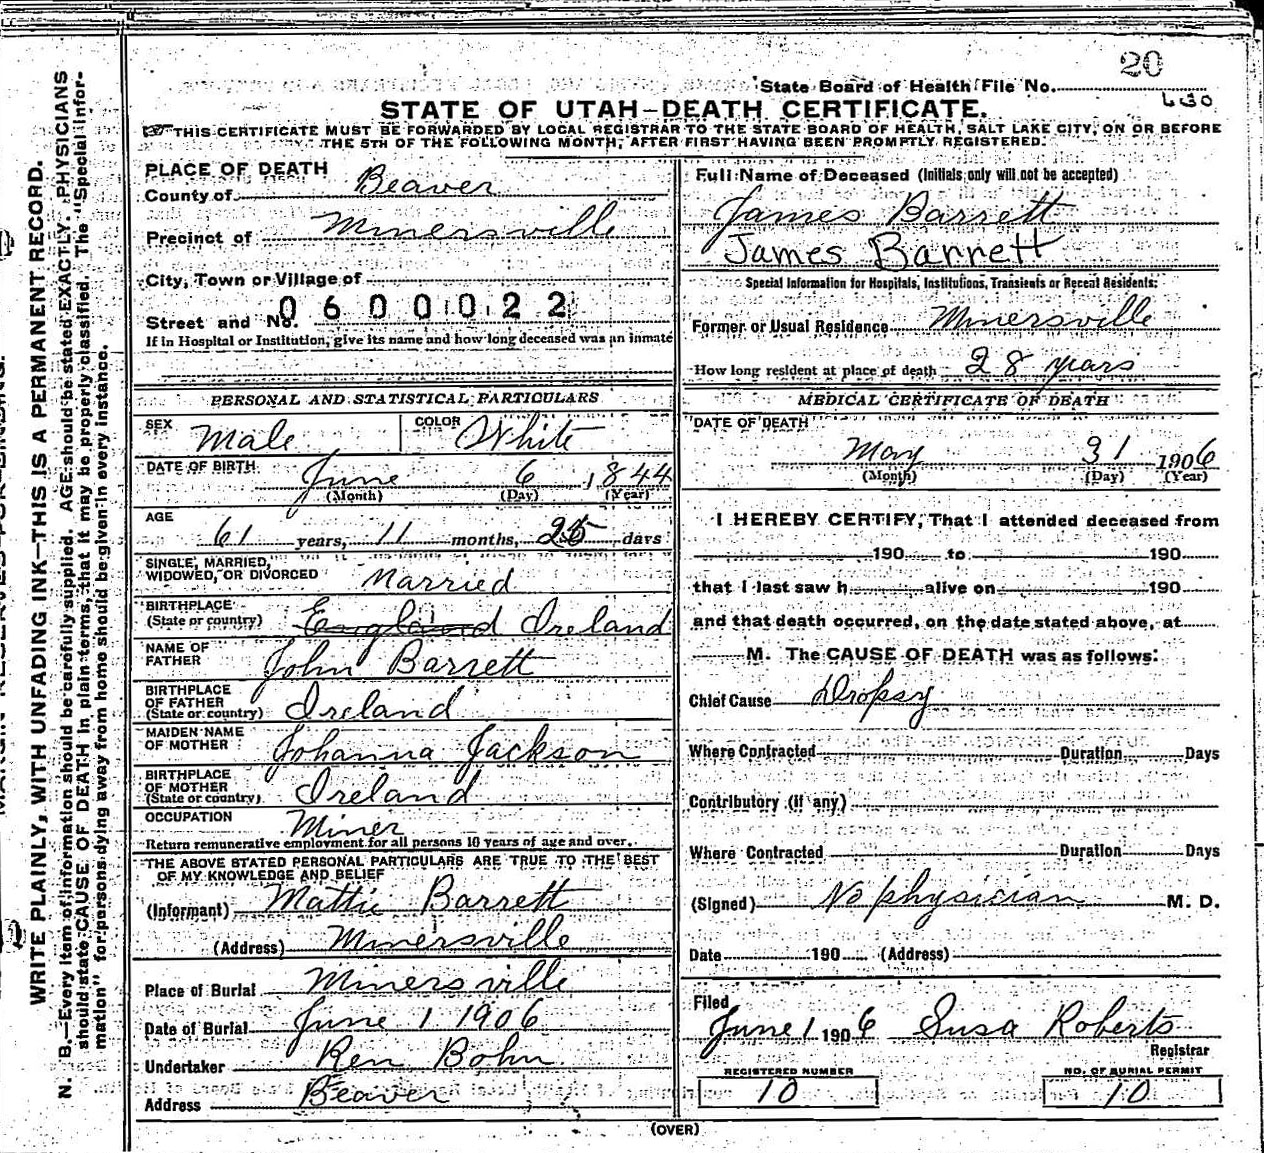 20
State Board of Health File No.
630
STATE OF UTAH—DEATH CERTIFICATE.
THIS CERTIFICATE MUST BE FORWARDED BY LOCAL REGISTRAR TO THE STATE BOARD OF HEALTH, SALT LAKE CITY, ON OR BEFORE
THE 5TH OF THE FOLLOWING MONTH, AFTER FIRST HAVING BEEN PROMPTLY REGISTERED.
PLACE OF DEATH
County of Beaver
Precinct of Minersville
City, Town or Village of
0600022
Street and No.
If in Hospital or Institution, give its name and how long deceased was an inmate
PERSONAL AND STATISTICAL PARTICULARS
SEX Male COLOR White
DATE OF BIRTH June 6 1844
(Month) (Day) (Year)
AGE
61 years, 11 months, 25 days
SINGLE, MARRIED,
WIDOWED, OR DIVORCED Married
BIRTHPLACE
(State or country) England Ireland
NAME OF
FATHER John Barrett
BIRTHPLACE
OF FATHER
(State or country) Ireland
MAIDEN NAME
OF MOTHER Johanna Jackson
BIRTHPLACE
OF MOTHER
(State or country) Ireland
OCCUPATION
Miner
Return remunerative employment for all persons 10 years of age and over.
THE ABOVE STATED PERSONAL PARTICULARS ARE TRUE TO THE BEST
OF MY KNOWLEDGE AND BELIEF
(Informant) Mattie Barrett
(Address) Minersville
Place of Burial Minersville
Date of Burial June 1 1906
Undertaker Ren Bohn
Address Beaver
Full Name of Deceased (Initials only will not be accepted)
James Barrett
James Barrett
Special Information for Hospitals, Institutions, Transients or Recent Residents:
Former or Usual Residence Minersville
How long resident at place of death 28 years
MEDICAL CERTIFICATE OF DEATH
DATE OF DEATH
May 31 1906
(Month) (Day) (Year)
I HEREBY CERTIFY, That I attended deceased from
190 to 190
that I last saw h alive on 190
and that death occurred, on the date stated above, at
M. The CAUSE OF DEATH was as follows:
Chief Cause Dropsy
Where Contracted Duration Days
Contributory (if any)
Where Contracted Duration Days
(Signed) No physician M. D.
Date 190 (Address)
Filed
June 1 1906 Susa Roberts
Registrar
REGISTERED NUMBER NO. OF BURIAL PERMIT
10 10
(OVER)
WRITE PLAINLY, WITH UNFADING INK—THIS IS A PERMANENT RECORD.
N. B.—Every item of information should be carefully supplied. AGE should be stated EXACTLY. PHYSICIANS
should state CAUSE OF DEATH in plain terms, that it may be properly classified. The "Special Infor-
mation" for persons dying away from home should be given in every instance.